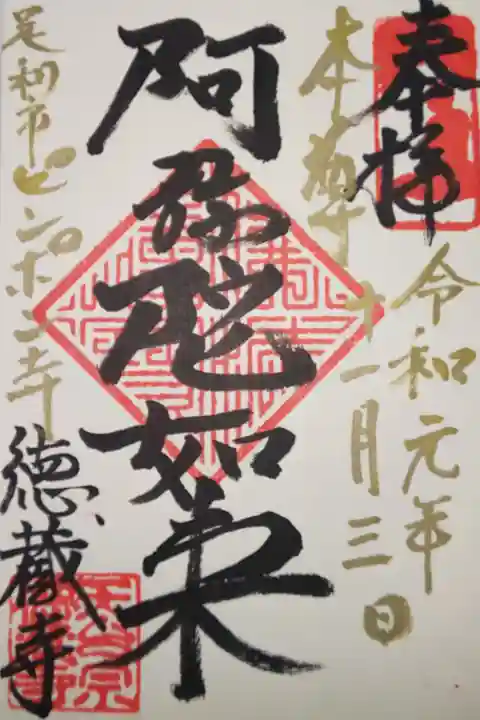 奉拝
令和元年
十一月三日
本尊
阿弥陀如来
足利市ピンポン寺
徳蔵寺